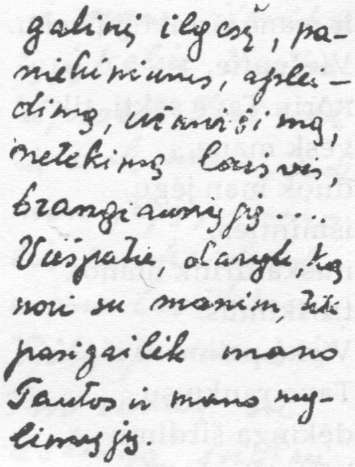 galinį ilgesį, pa-
niekinimus, aplei-
dimą, užmiršimą,
netekimą laisvės,
brangiausiųjų ....
Viešpatie, daryk, ką
nori su manim, tik
pasigailėk mano
Tautos ir mano my-
limųjų.